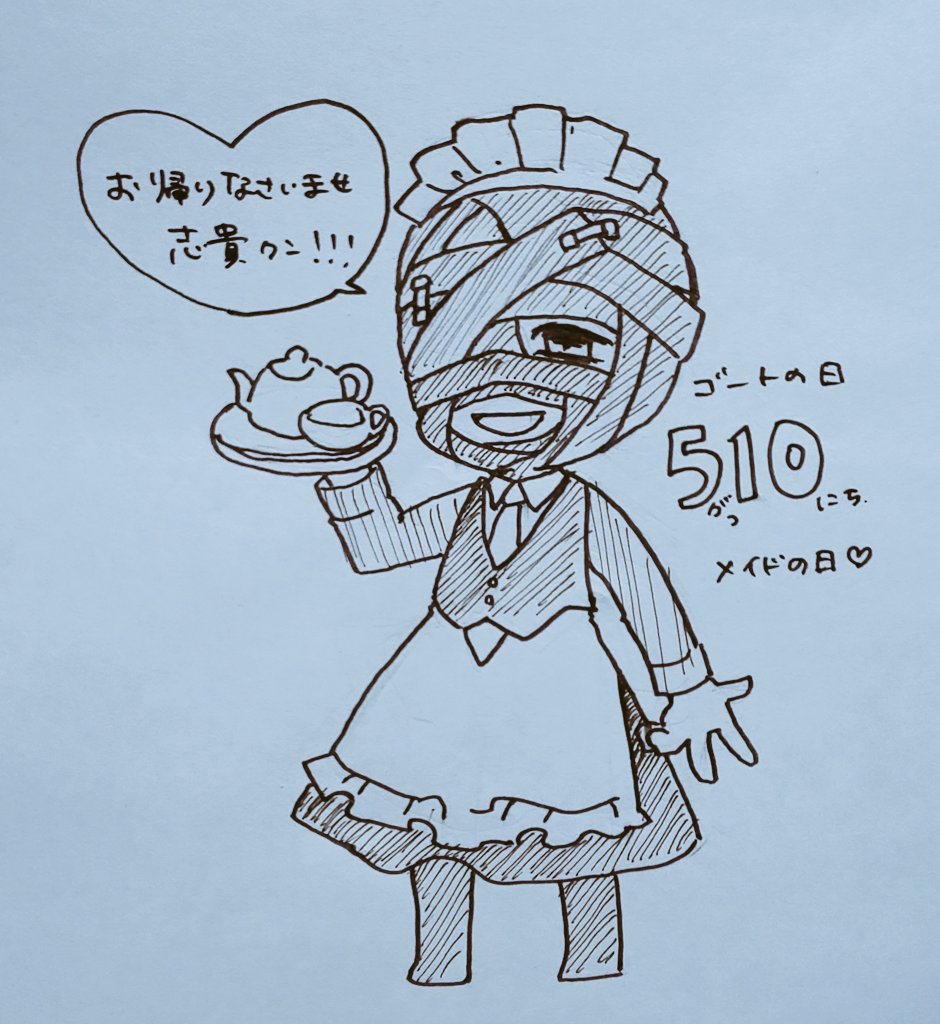 お帰りなさいませ
志貴クン!!!
ゴートの日
510
がつ にち
メイドの日♡